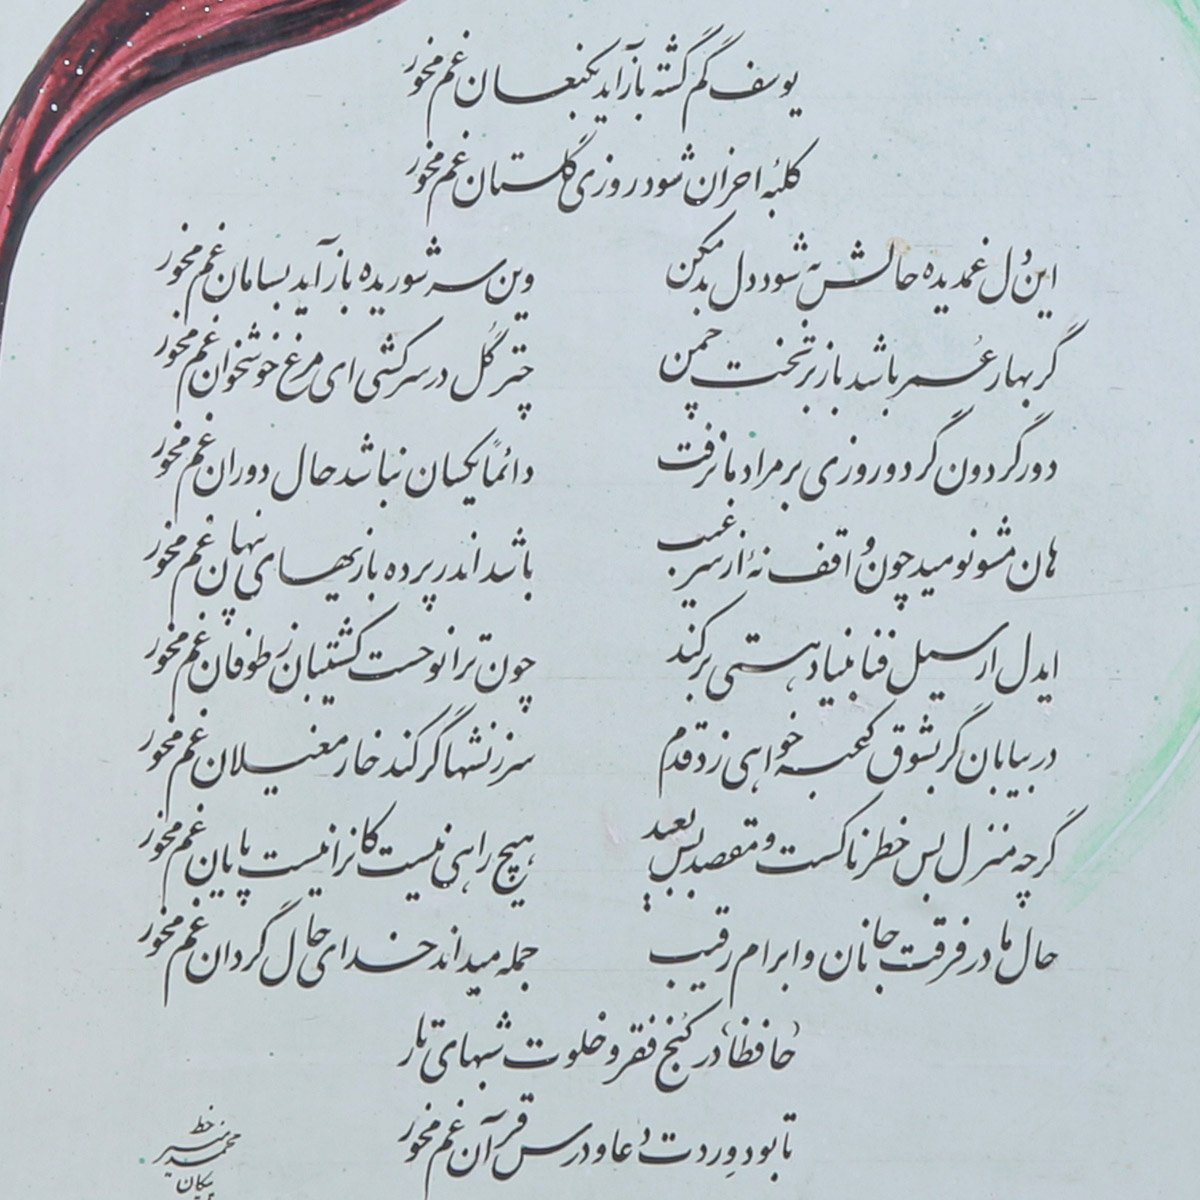 یوسف گم گشته باز آید بکنعان غم مخور
کلبهٔ احزان شود روزی گلستان غم مخور
این دل غمدیده حالش به شود دل بد مکن
وین سر شوریده باز آید بسامان غم مخور
گر بهار عُمر باشد باز بر تخت چمن
چتر گُل در سر کشی ای مرغ خوشخوان غم مخور
دور گردون گر دو روزی بر مراد ما نرفت
دائماً یکسان نباشد حال دوران غم مخور
هان مشو نومید چون واقف نهٔ از سر غیب
باشد اندر پرده بازیهای پنهان غم مخور
ایدل ار سیل فنا بنیاد هستی بر کند
چون ترا نوحست کشتیبان ز طوفان غم مخور
در بیابان گر بشوق کعبه خواهی زد قدم
سرزنشها گر کند خار مغیلان غم مخور
گرچه منزل بس خطرناکست و مقصد بس بعید
هیچ راهی نیست کانرا نیست پایان غم مخور
حال ما در فرقت جانان و ابرام رقیب
جمله میداند خدای حال گردان غم مخور
«حافظا» در کُنج فقر و خلوت شبهای تار
تا بود وِردت دعا و درس قرآن غم مخور
خط
محمد
پیکان